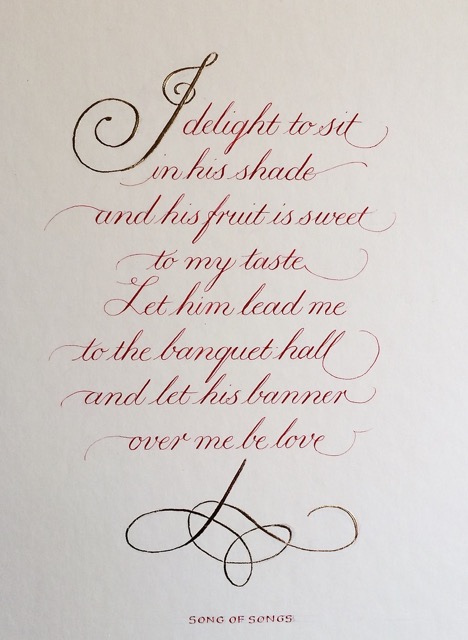 I delight to sit
in his shade
and his fruit is sweet
to my taste
Let him lead me
to the banquet hall
and let his banner
over me be love
SONG OF SONGS